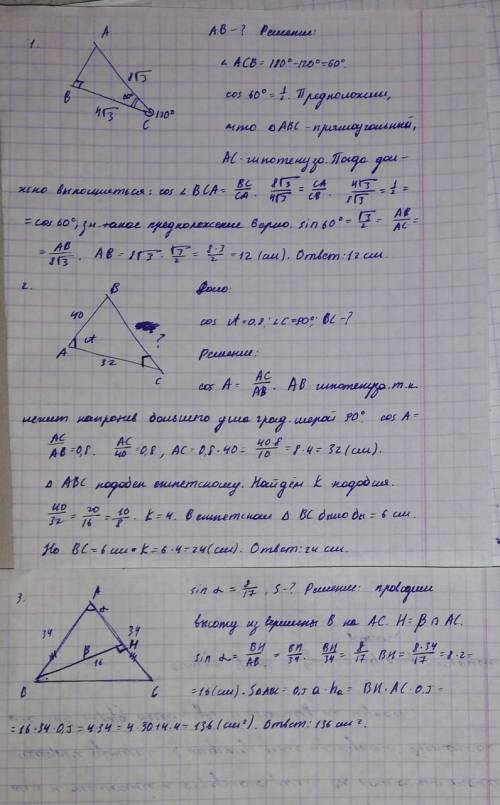 1.
A
B
C
8√3
4√3
60°
120°
AB-? Решение:
∠ACB = 180°-120°=60°.
cos 60° = 1/2. Предположим,
что △ABC-прямоугольный,
AC-гипотенуза. Тогда дол-
жно выполняться: cos∠BCA = BC/CA. 8√3/4√3 = CA/CB. 4√3/8√3 = 1/2 =
= cos60°, значит предположение верно. sin 60° = √3/2 = AB/AC =
= AB/8√3. AB = 8√3 · √3/2 = 8·3/2 = 12 (см). Ответ: 12 см.
2.
B
40
A
32
?
C
Дано:
cos A = 0,8; ∠C = 90°; BC-?
Решение:
cos A = AC/AB. AB гипотенуза, т.к.
лежит напротив большего угла град. мерой 90°. cos A =
AC/AB = 0,8. AC/40 = 0,8, AC = 0,8·40 = 40·8/10 = 8·4 = 32 (см).
△ ABC подобен египетскому. Найдём K подобия.
40/32 = 20/16 = 10/8. K = 4. В египетском △ BC было бы = 6 см.
Но BC = 6 см · K = 6·4 = 24 (см). Ответ: 24 см.
3.
A
α
34
34
β
H
16
B
C
sin α = 8/17, S-? Решение: проводим
высоту из вершины B на AC. H = β ∩ AC.
sin α = BH/AB = BH/34. BH/34 = 8/17. BH = 8·34/17 = 8·2 =
= 16 (см). SΔABC = 0,5 a·hₐ = BH·AC·0,5 =
= 16·34·0,5 = 4·34 = 4·30+4·4 = 136 (см²). Ответ: 136 см².